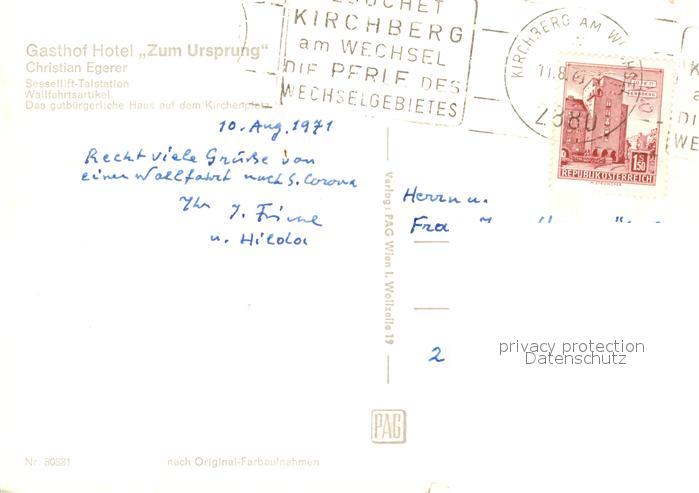 Gasthof Hotel „Zum Ursprung“
Christian Egerer
Sessellift-Talstation
Wallfahrtsartikel
Das gutbürgerliche Haus auf dem Kirchenplatz
BESUCHET
KIRCHBERG
am WECHSEL
DIE PERLE DES
WECHSELGEBIETES
KIRCHBERG AM
11.8.
2880
1.50
REPUBLIK ÖSTERREICH
10. Aug. 1971
Recht viele Grüße von
einer Wallfahrt nach S. Corona
Ihr J.
u. Hilda
Verlag: PAG Wien I. Wollzeile 19
Herrn u.
Fra
2
privacy protection
Datenschutz
PAG
Nr. 80881
nach Original-Farbaufnahmen